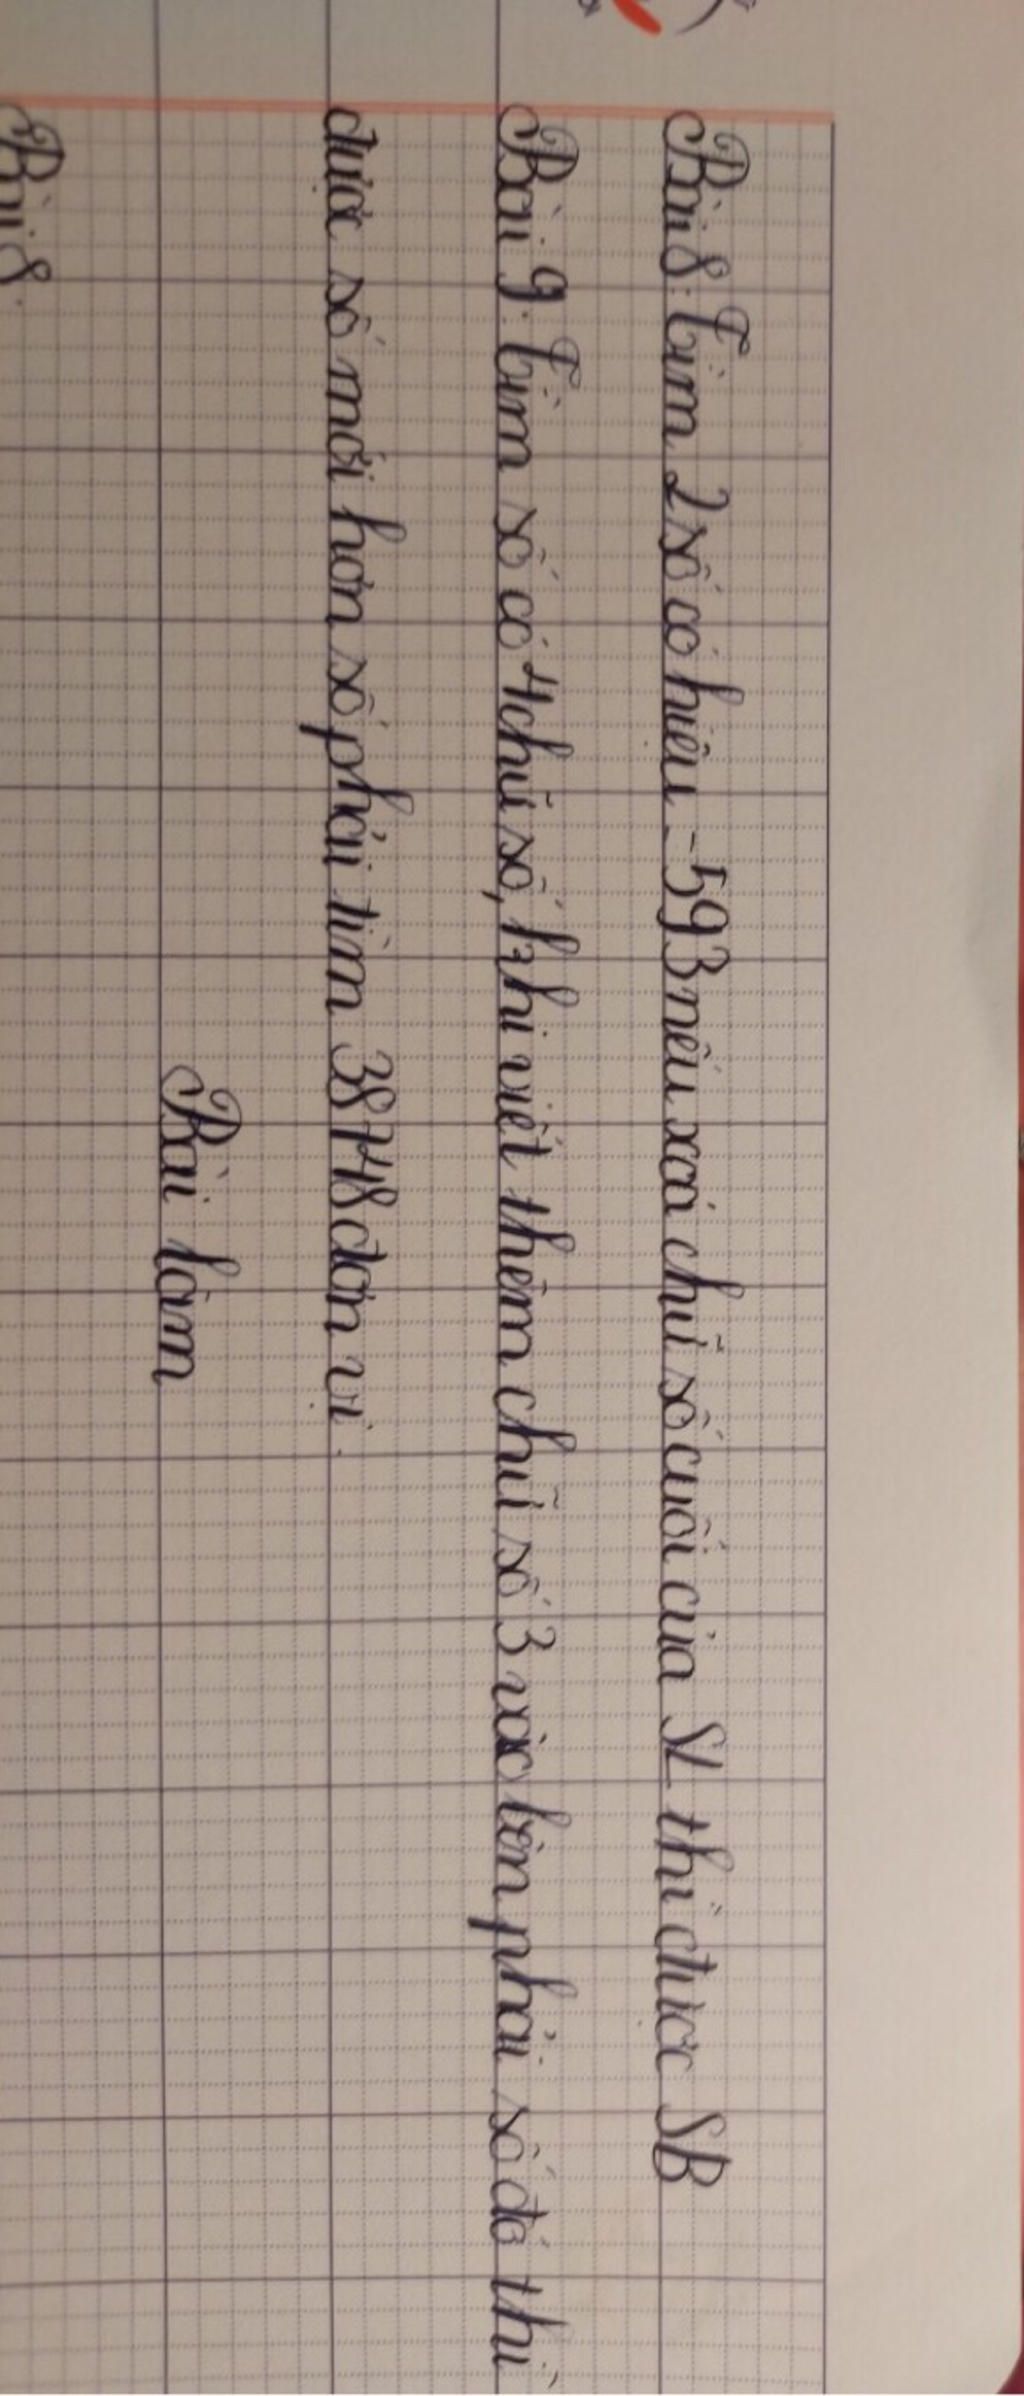 Bài 8: Tìm 2 số có hiệu -593 nếu xoá chữ số cuối của SL thì được SB
Bài 9: Tìm số có 4 chữ số, khi viết thêm chữ số 3 vào bên phải số đó thì
được số mới hơn số phải tìm 38748 đơn vị.
Bài làm
Bài 8